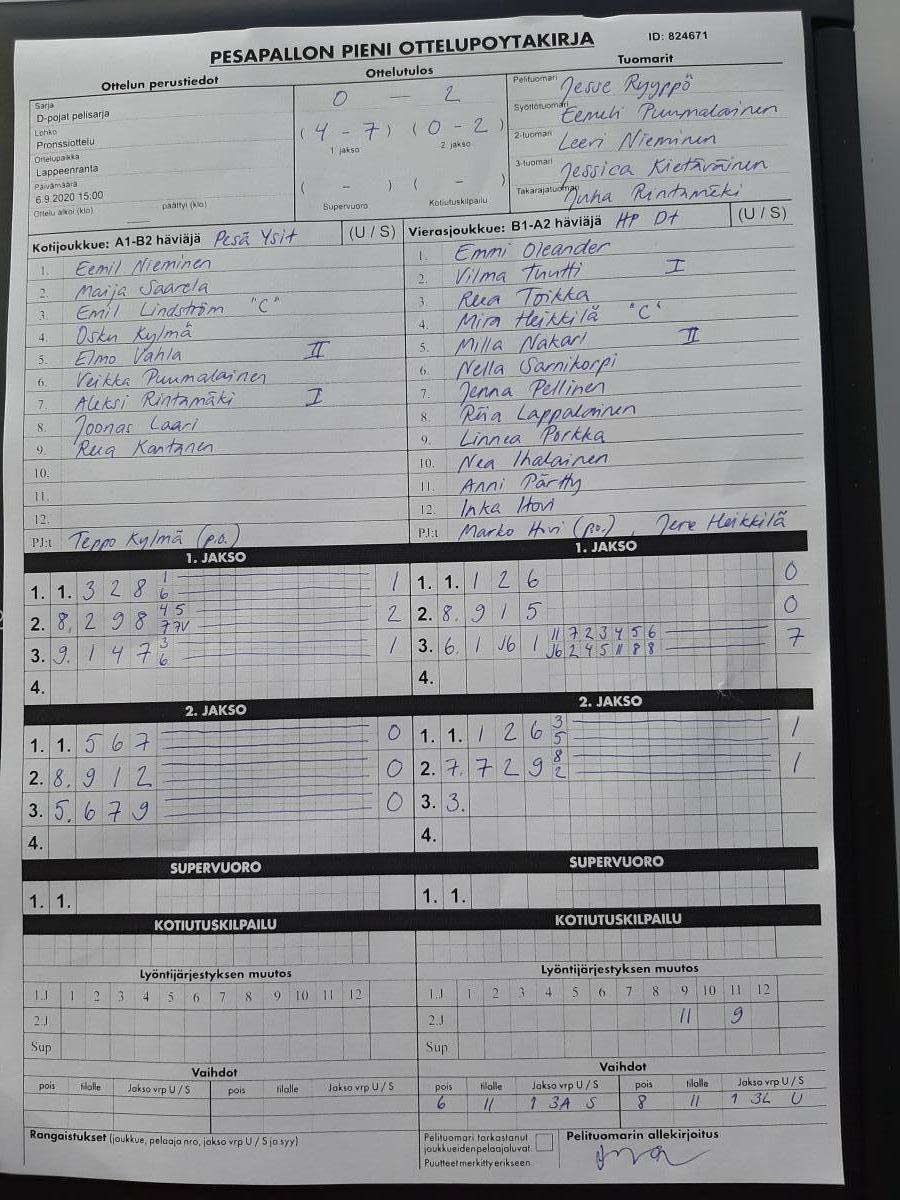 PESAPALLON PIENI OTTELUPOYTAKIRJA ID: 824671
Ottelun perustiedot Ottelutulos Tuomarit
Sarja
D-pojat pelisarja
Lohko
Pronssiottelu
Ottelupaikka
Lappeenranta
Päivämäärä
6.9.2020 15:00
Ottelu alkoi (klo) päättyi (klo)
0 - 2
(4 - 7) (0 - 2)
1 jakso 2 jakso
( - ) ( - )
Supervuoro Kotiutuskilpailu
Pelituomari Jesse Ryyppö
Syöttötuomari Eemeli Puumalainen
2-tuomari Leevi Nieminen
3-tuomari Jessica Kietäväinen
Takarajatuomari Juha Rintamäki
Kotijoukkue: A1-B2 häviäjä Pesä Ysit (U / S)
1. Eemil Nieminen
2. Maija Saarela
3. Emil Lindström "C"
4. Osku Kylmä
5. Elmo Vahla II
6. Veikka Puumalainen
7. Aleksi Rintamäki I
8. Joonas Laari
9. Reea Kantanen
10.
11.
12.
PJ:t Teppo Kylmä (p.o.)
Vierasjoukkue: B1-A2 häviäjä HP Dt (U / S)
1. Emmi Oleander
2. Vilma Tuutti I
3. Reea Toikka
4. Mira Heikkilä "C"
5. Milla Nakari II
6. Nella Sarnikorpi
7. Jenna Pellinen
8. Riia Lappalainen
9. Linnea Porkka
10. Nea Ihalainen
11. Anni Pärtty
12. Inka Hovi
PJ:t Marko Hovi (p.o.), Jere Heikkilä
1. JAKSO
1. 1. 3 2 8 1 6 1
2. 8. 2 9 8 4 5 7 7V 2
3. 9. 1 4 7 3 6 1
4.
1. JAKSO
1. 1. 1 2 6 0
2. 8. 9 1 5 0
3. 6. 1 J6 1 11 7 2 3 4 5 6 7
J6 2 4 5 11 8 8
4.
2. JAKSO
1. 1. 5 6 7 0
2. 8. 9 1 2 0
3. 5. 6 7 9 0
4.
2. JAKSO
1. 1. 1 2 6 3 5 1
2. 7. 7 2 9 8 2 1
3. 3.
4.
SUPERVUORO
1. 1.
SUPERVUORO
1. 1.
KOTIUTUSKILPAILU
KOTIUTUSKILPAILU
Lyöntijärjestyksen muutos
1.J 1 2 3 4 5 6 7 8 9 10 11 12
2.J
Sup
Lyöntijärjestyksen muutos
1.J 1 2 3 4 5 6 7 8 9 10 11 12
2.J 11 9
Sup
Vaihdot
pois tilalle Jakso vrp U / S pois tilalle Jakso vrp U / S
Vaihdot
pois tilalle Jakso vrp U / S pois tilalle Jakso vrp U / S
6 11 1 3A S 8 11 1 3L U
Rangaistukset (joukkue, pelaaja nro, jakso vrp U / S ja syy)
Pelituomari tarkastanut
joukkueiden pelaajaluvat.
Puutteet merkitty erikseen.
Pelituomarin allekirjoitus